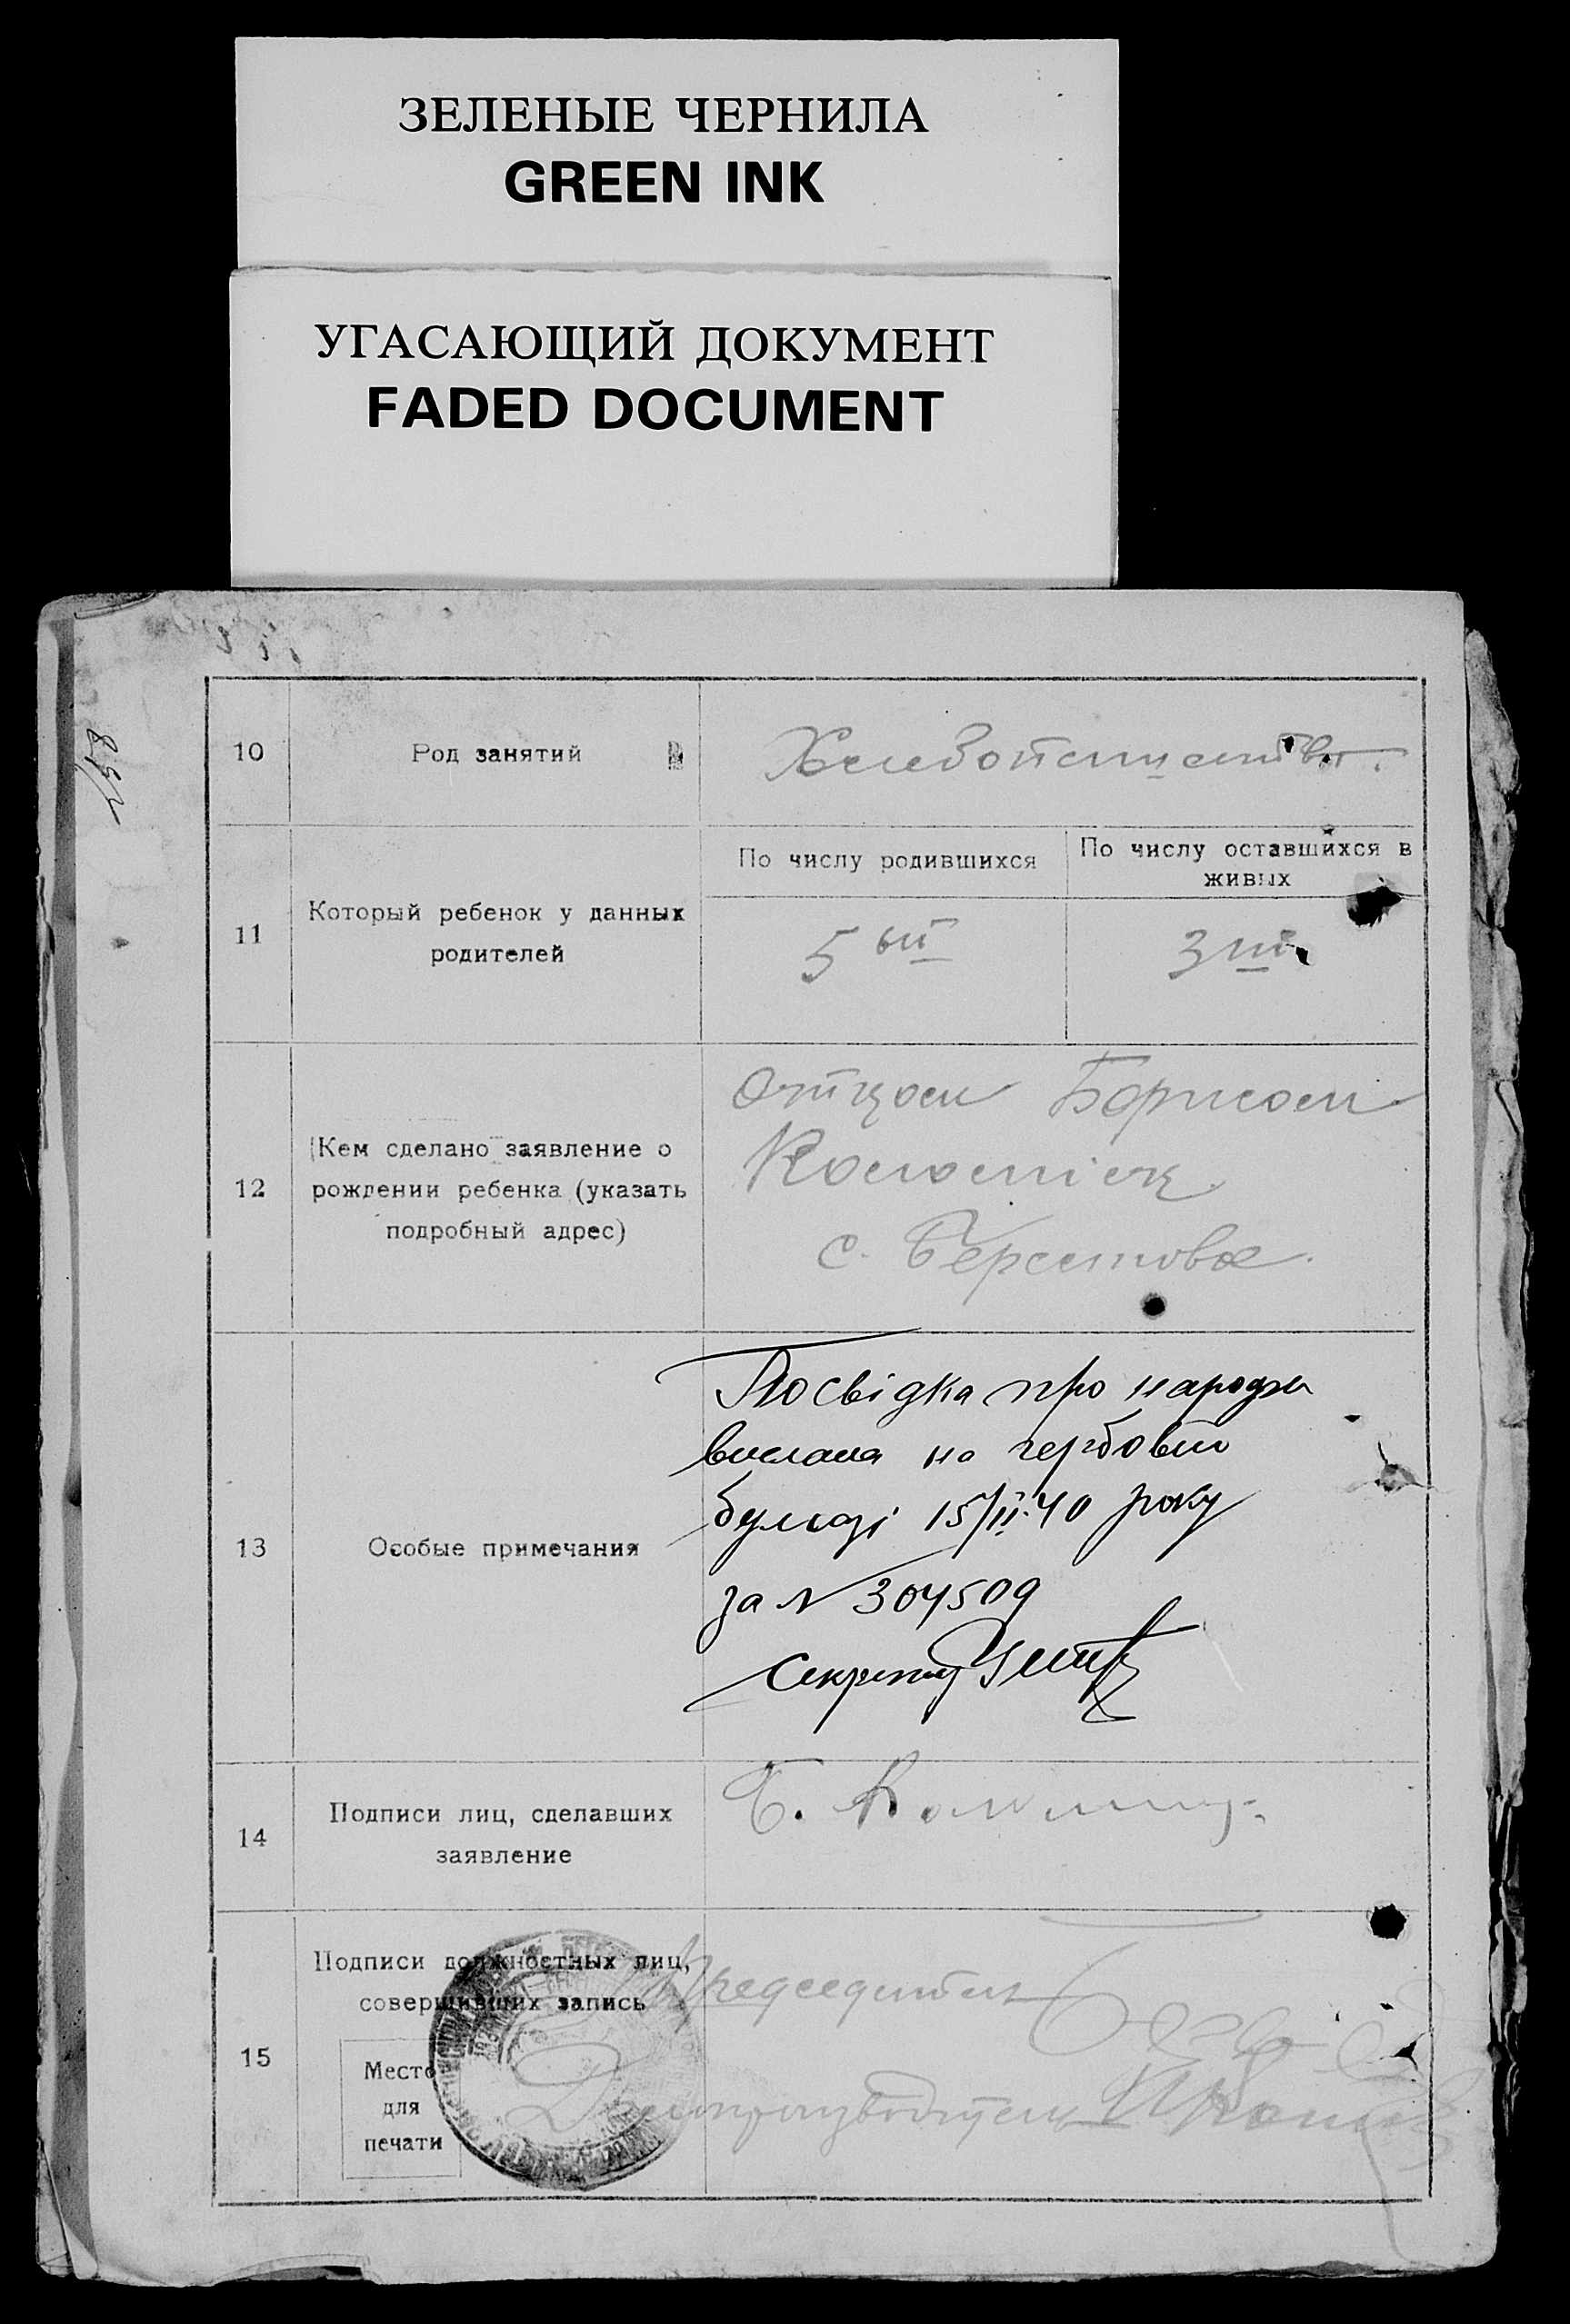 ЗЕЛЕНЫЕ ЧЕРНИЛА
GREEN INK
УГАСАЮЩИЙ ДОКУМЕНТ
FADED DOCUMENT
10
Род занятий
Хлебопашество.
11
Который ребенок у данных
родителей
По числу родившихся
По числу оставшихся в
живых
5 ый
3 ий
12
Кем сделано заявление о
рождении ребенка (указать
подробный адрес)
Отцом Борисом
с. Берестовое.
13
Особые примечания
Посвідка про народж
вислана на гербовім
бумазі 15/II 40 року
за N 304509
Секретар
14
Подписи лиц, сделавших
заявление
Б.
15
Подписи должностных лиц,
совершивших запись
Место
для
печати
Председатель
Делопроизводитель